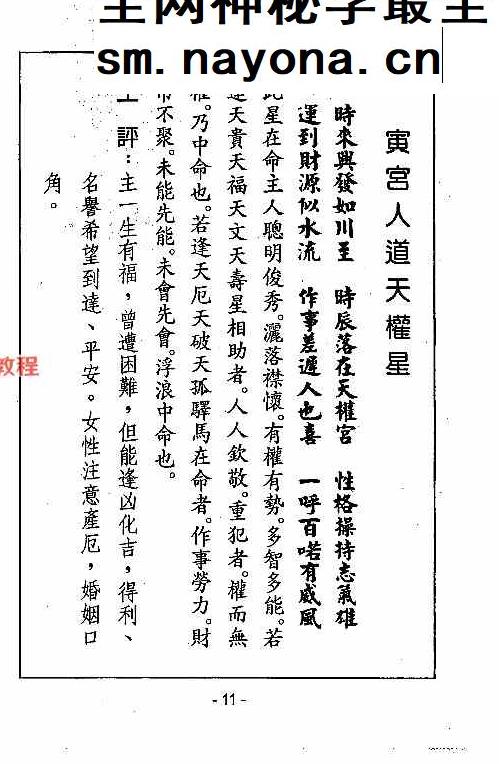 全网神秘学最全
sm.nayona.cn
寅宮人道天權星
時來興發如川至　時辰落在天權宮　性格操持志氣雄
運到財源似水流　作事差遲人也喜　一呼百喏有威風
此星在命主人聰明俊秀。灑落襟懷。有權有勢。多智多能。若
逢天貴天福天文天壽星相助者。人人欽敬。重犯者。權而無
權。乃中命也。若逢天厄天破天孤驛馬在命者。作事勞力。財
帛不聚。未能先能。未會先會。浮浪中命也。
評：主一生有福，曾遭困難，但能逢凶化吉，得利、
名譽希望到達、平安。女性注意產厄，婚姻口
角。
教程
-11-